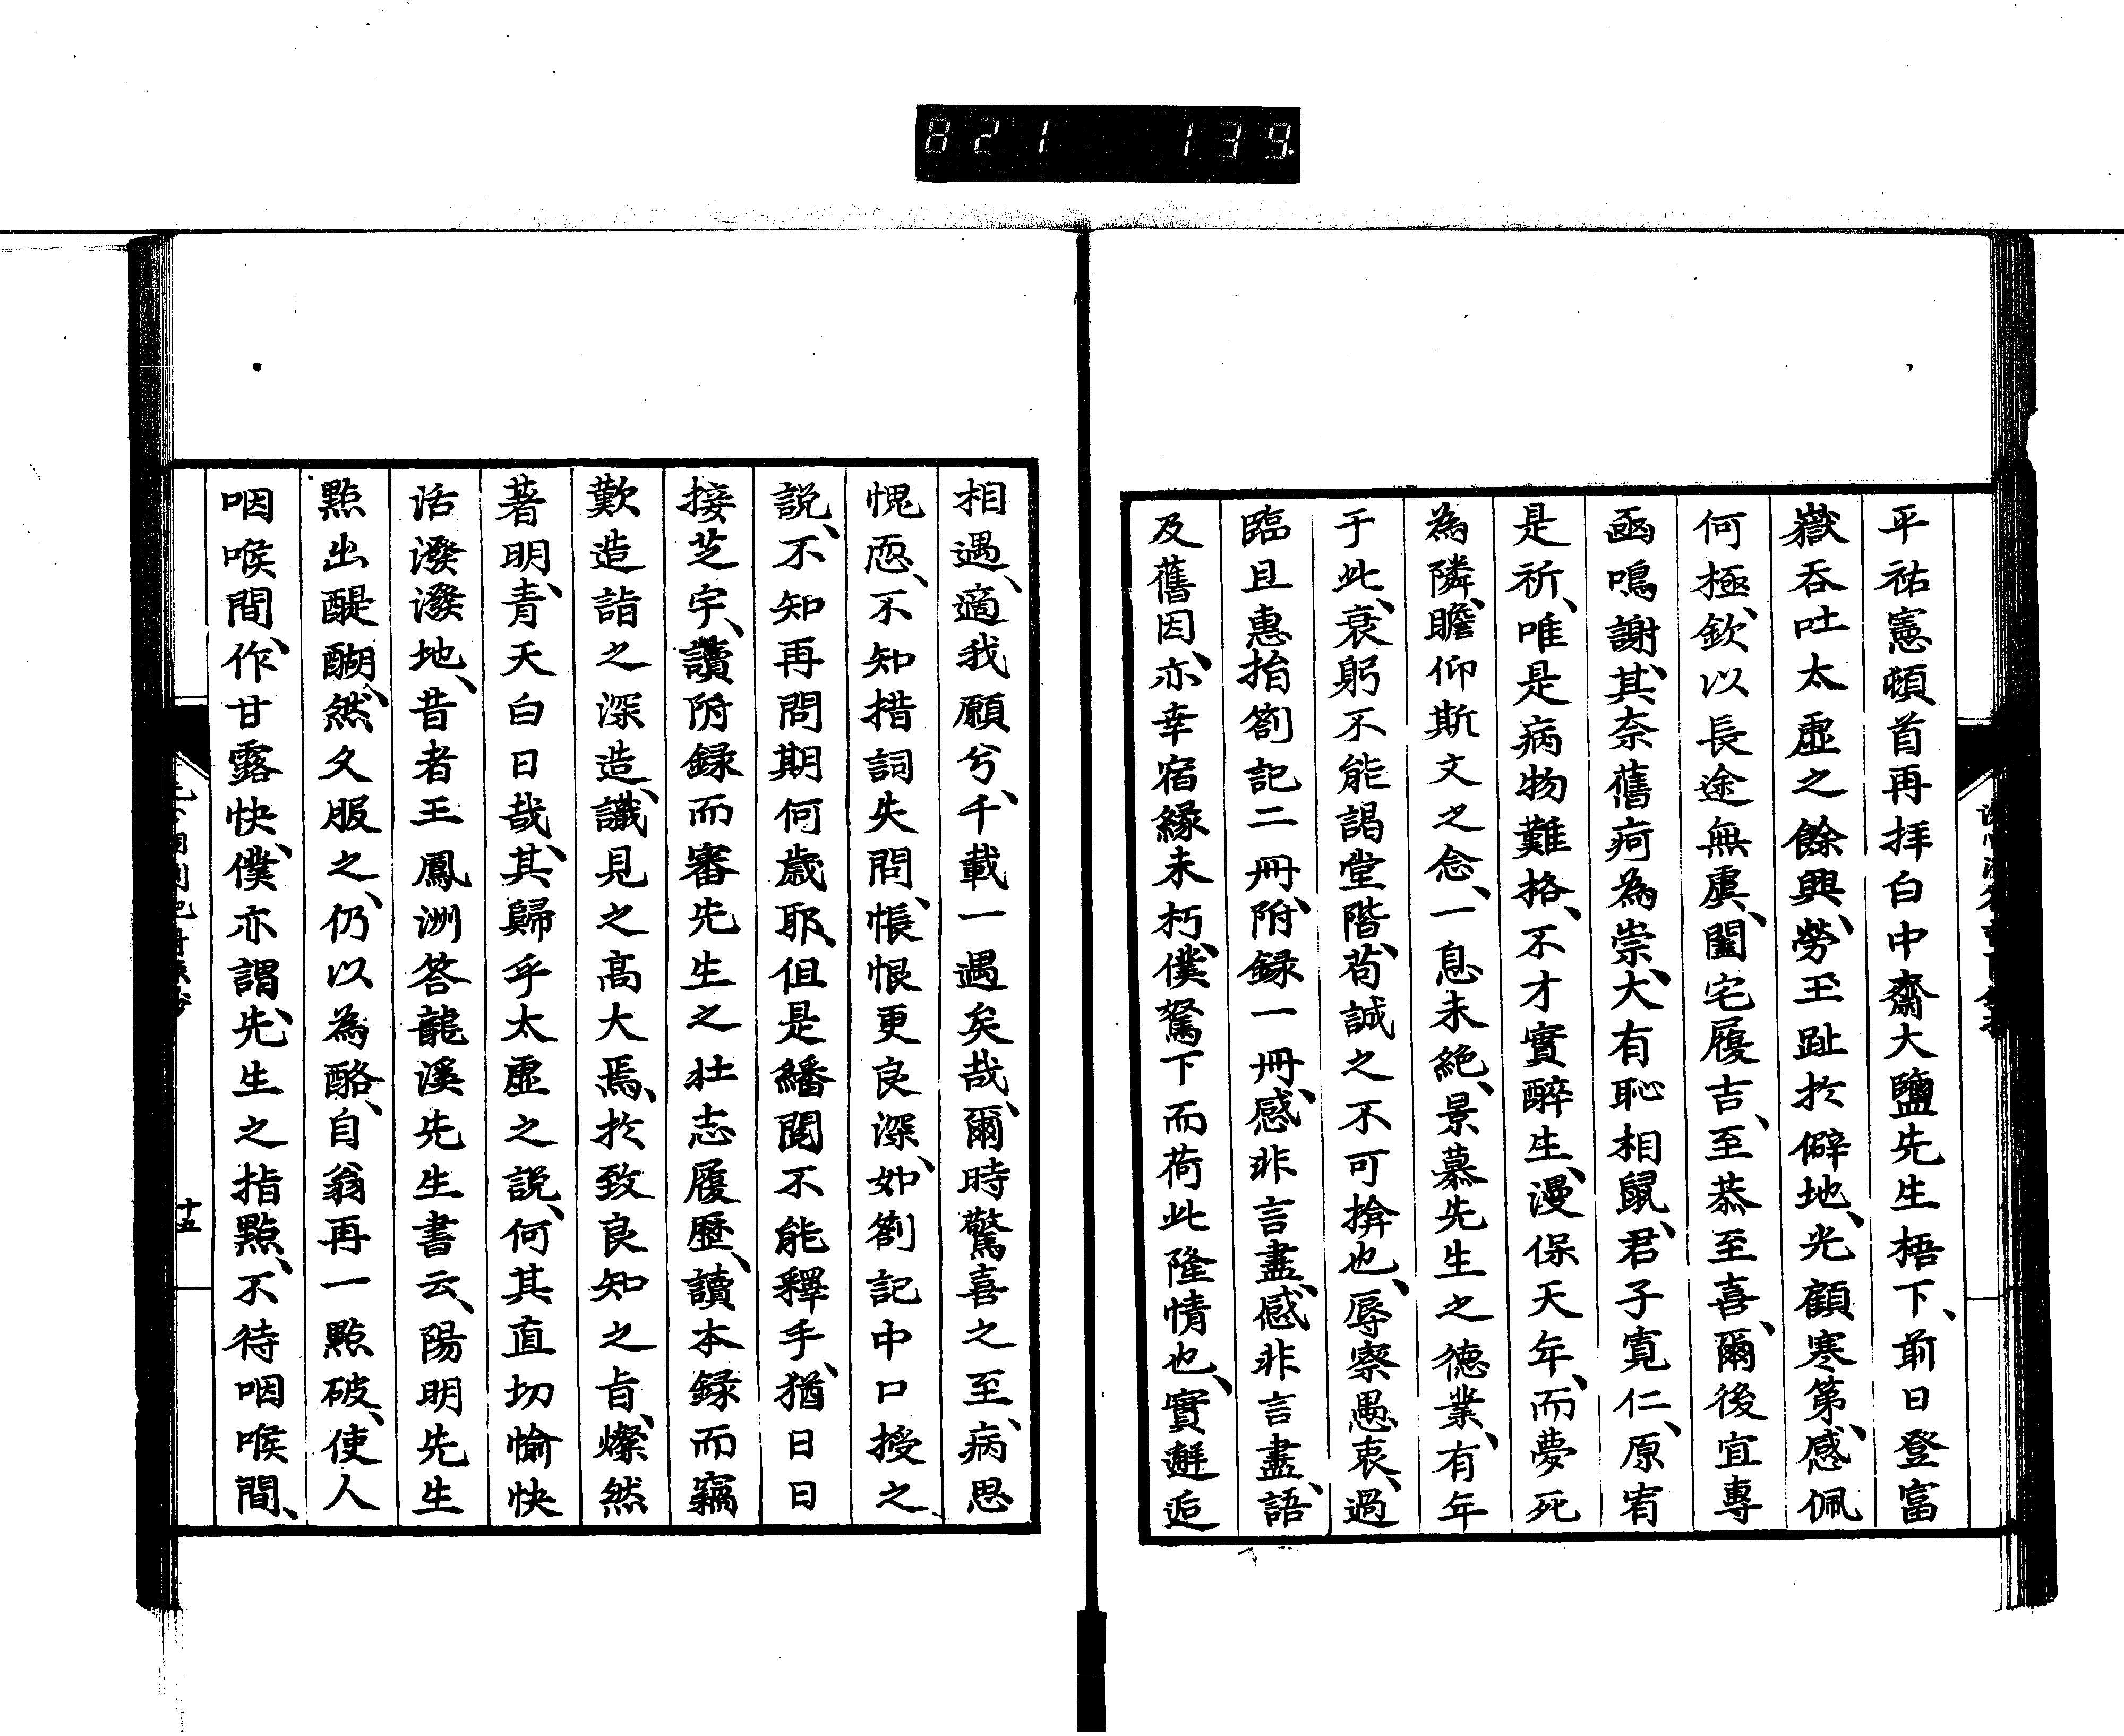 821 139
平祐憲頓首再拝白中齋大鹽先生梧下、前日登富
嶽吞吐太虛之餘興、勞玉趾於僻地、光顧寒第、感佩
何極、欽以長途無虞、闔宅履吉、至恭至喜、爾後宜專
凾鳴謝、其奈舊疴為祟、大有恥相鼠、君子寬仁、原宥
是祈、唯是病物難格、不才實醉生、漫保天年、而夢死
為隣、瞻仰斯文之念、一息未絶、景慕先生之德業、有年
于此、衰躬不能謁堂階、苟誠之不可揜也、辱察愚衷、過
臨且惠掐劄記二冊、附録一冊、感非言盡、感非言盡、語
及舊因、亦幸宿緣未朽、僕駑下而荷此隆情也、實邂逅
相遇、適我願兮、千載一遇矣哉、爾時驚喜之至、病思
愧恧、不知措詞失問、悵恨更良深、如劄記中口授之
説、不知再問期何歲耶、但是繙閲不能釋手、猶日日
接芝宇、讀附録而審先生之壮志履歷、讀本録而竊
歎造詣之深造、識見之高大焉、於致良知之旨、燦然
著明、青天白日哉、其歸乎太虛之説、何其直切愉快
活潑潑地、昔者王鳳洲答龍溪先生書云、陽明先生
點出醍醐、然久服之、仍以為酪、自翁再一點破、使人
咽喉間、作甘露快、僕亦謂先生之指點、不待咽喉間、
十五